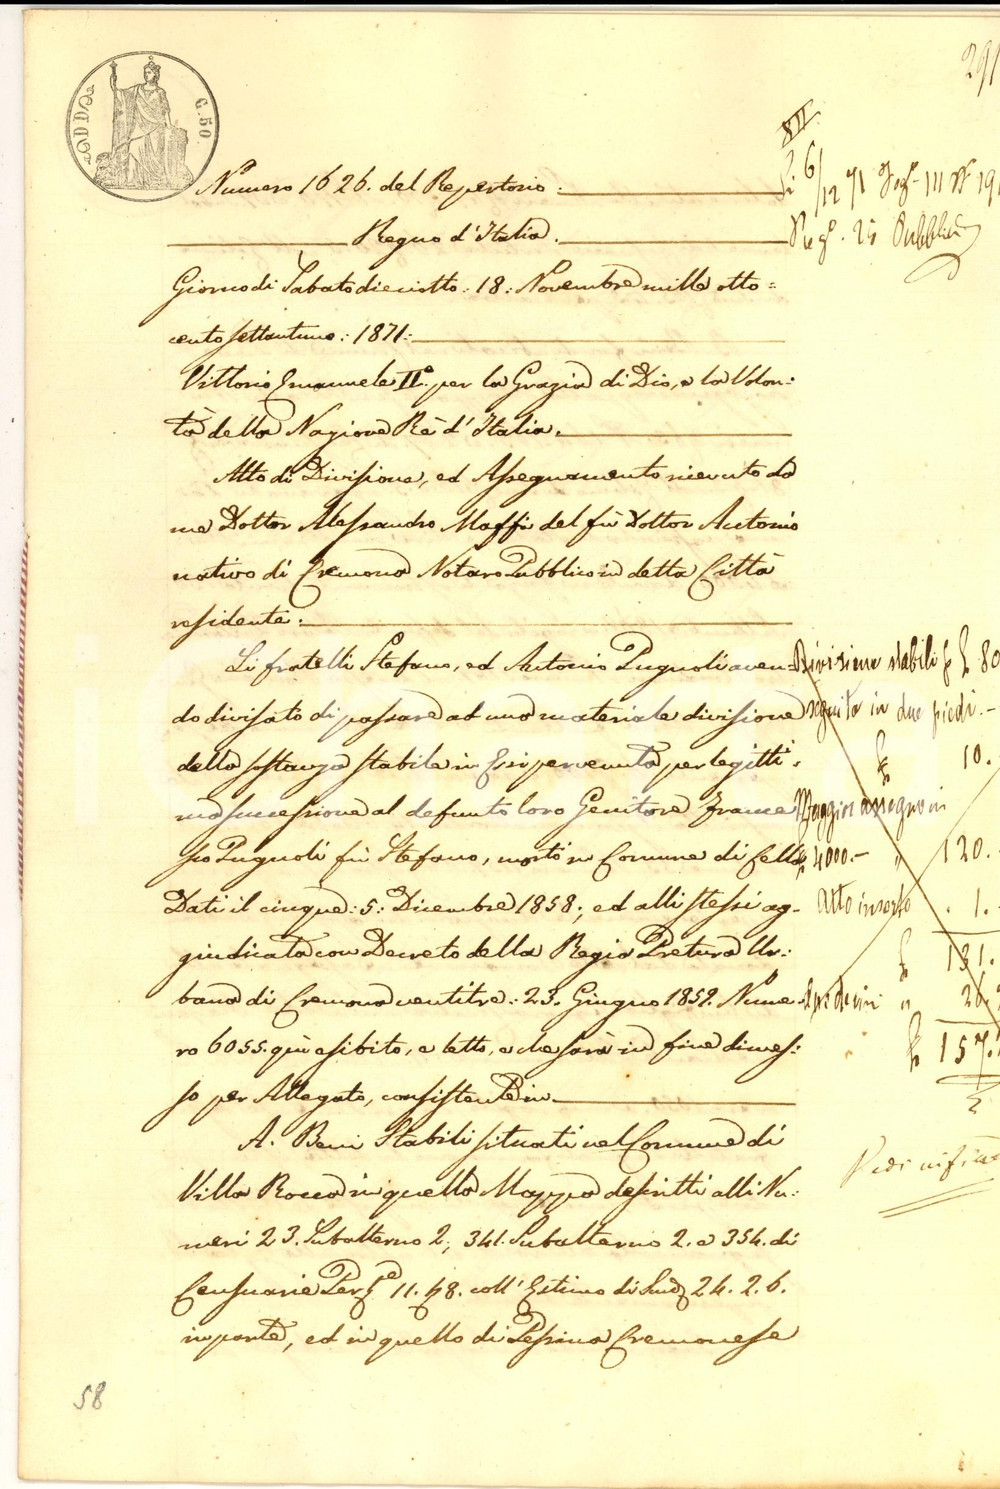 291
G. 50
Numero 1626. del Repertorio.
6/12 71
Regno d'Italia.
Pubblici
Giorno di Sabato dieciotto: 18: Novembre mille otto=
cento settantuno: 1871:
Vittorio Emanuele II° per la Grazia di Dio, e la Volon=
tà della Nazione Rè d'Italia.
Atto di Divisione, ed Assegnamento ricevuto da
me Dottor Alessandro Maffi del fù Dottor Antonio
nativo di Cremona Notaro Pubblico in detta Città
residente.
Li fratelli Stefano, ed Antonio Pugnoli aven=
do divisato di passare ad una materiale divisione
della sostanza stabile in Essi pervenuta per legitti=
ma successione al defunto loro Genitore France
sco Pugnoli fù Stefano, morto in Comune di Cella
Dati il cinque: 5: Dicembre 1858; ed alli stessi ag=
giudicata con Decreto della Regia Pretura Ur=
bana di Cremona ventitre: 23. Giugno 1859. Nume=
ro 6055. quì esibito, e letto, e che sarà in fine dimes=
so per Allegato, consistente in
A. Beni Stabili situati nel Comune di
Villa Rocca in quella Mappa descritti alli Nu=
meri 23. Subalterno 2; 341. Subalterno 2. e 354. di
Censuarie Pert.e 11. 48. coll'Estimo di Scudi 24. 2. 6.
in parte, ed in quello di Pessina Cremonese
Divisione stabili £ 80
seguita in due piedi.
10.
Maggior assegno in
£ 4000.- " 120.
Atto inserto . 1.
£ 131.
" 26.
£ 157.
Vedi in fine
58